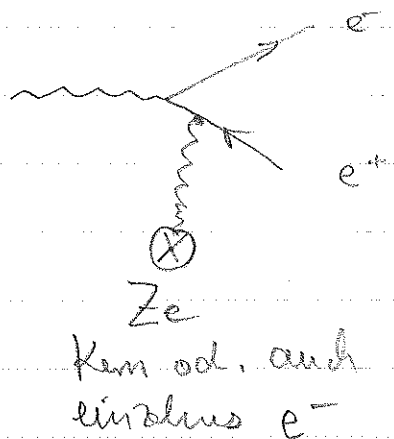 e⁻
e⁺
Ze
Kern od. auch
einzelnes e⁻